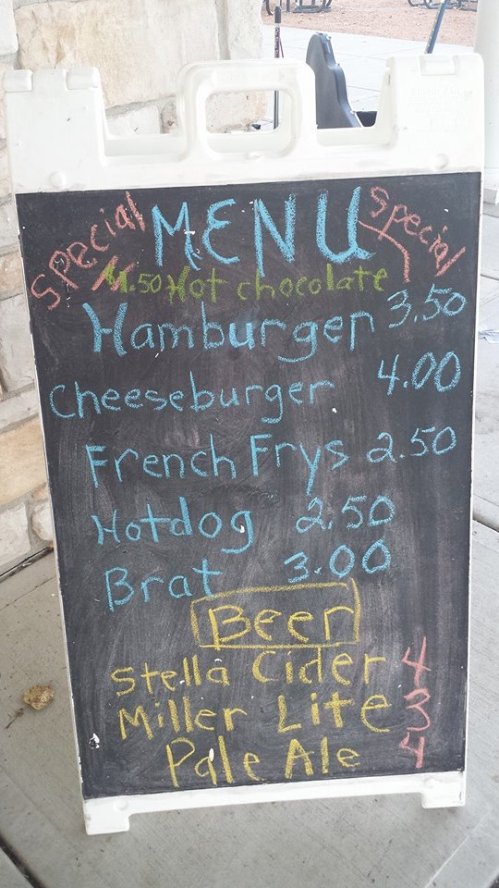 Special MENU Special
1.50 Hot chocolate
Hamburger 3.50
Cheeseburger 4.00
French Frys 2.50
Hotdog 2.50
Brat 3.00
Beer
Stella Cider 4
Miller Lite 3
Pale Ale 4